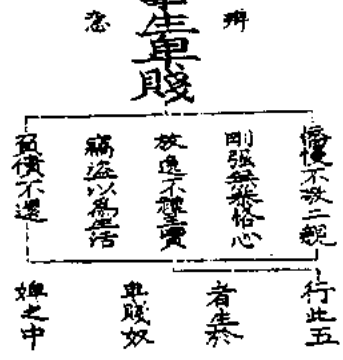 辨
意
生卑賤
憍慢不敬二親
剛强無恭恪心
放逸不禮三寶
竊盗以為生活
負債不還
行此五
者生於
卑賤奴
婢之中